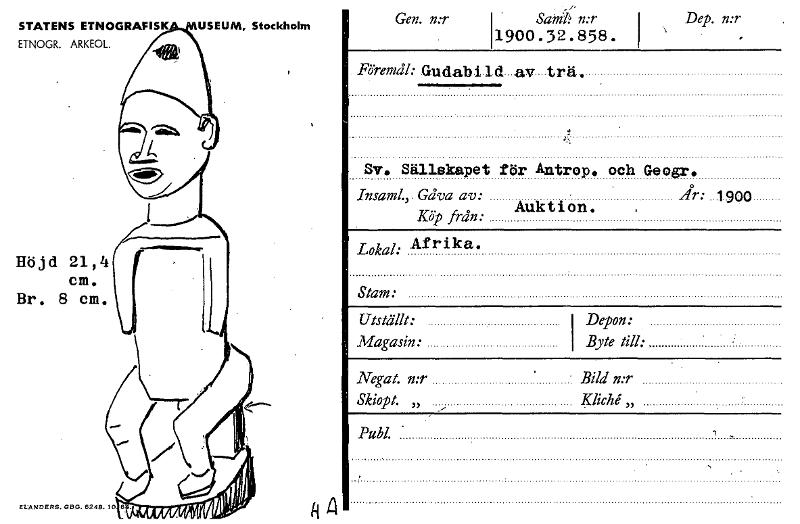 STATENS ETNOGRAFISKA MUSEUM, Stockholm
ETNOGR. ARKEOL.
Höjd 21,4
cm.
Br. 8 cm.
ELANDERS, GBG. 6248. 10.
H A
Gen. n:r Saml. n:r Dep. n:r
1900.32.858.
Föremål: Gudabild av trä.
Sv. Sällskapet för Antrop. och Geogr.
Insaml., Gåva av: År: 1900
Köp från: Auktion.
Lokal: Afrika.
Stam:
Utställt: Depon:
Magasin: Byte till:
Negat. n:r Bild n:r
Skiopt. „ Kliché „
Publ.